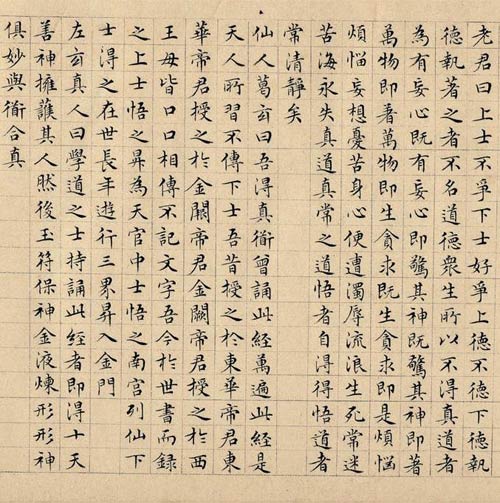 老君曰上士不爭下士好爭上德不德下德執
德執著之者不名道德衆生所以不得真道者
為有妄心既有妄心即驚其神既驚其神即著
萬物即著萬物即生貪求既生貪求即是煩惱
煩惱妄想憂苦身心便遭濁辱流浪生死常迷
苦海永失真道真常之道悟者自得得悟道者
常清靜矣
仙人葛玄曰吾得真衜曾誦此經萬遍此經是
天人所習不傳下士吾昔授之於東華帝君東
華帝君授之於金闕帝君金闕帝君授之於西
王母皆口口相傳不記文字吾今於世書而錄
之上士悟之昇為天官中士悟之南宮列仙下
士得之在世長年遊行三界昇入金門
左玄真人曰學道之士持誦此經者即得十天
善神擁護其人然後玉符保神金液煉形形神
俱妙與衜合真